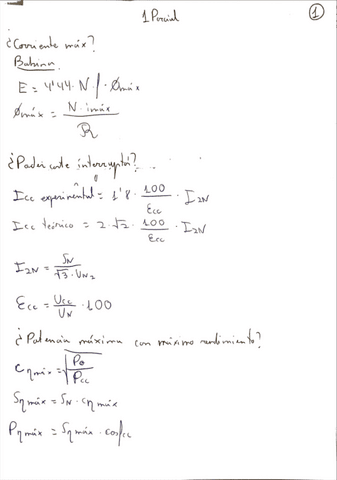 1 Parcial
1
¿Corriente máx?
Bobina
E = 4'44 · N · f · Ømáx
Ømáx = N · imáx / R
¿Poder corte interruptor?
Icc experimental = 1'8 · 100/εcc · I2N
Icc teórico = 2 · √2 · 100/εcc · I2N
I2N = SN / √3 · UN2
εcc = Ucc/UN · 100
¿Potencia máxima con máximo rendimiento?
Cηmáx = √P0/Pcc
Sηmáx = SN · Cηmáx
Pηmáx = Sηmáx · cosφcc